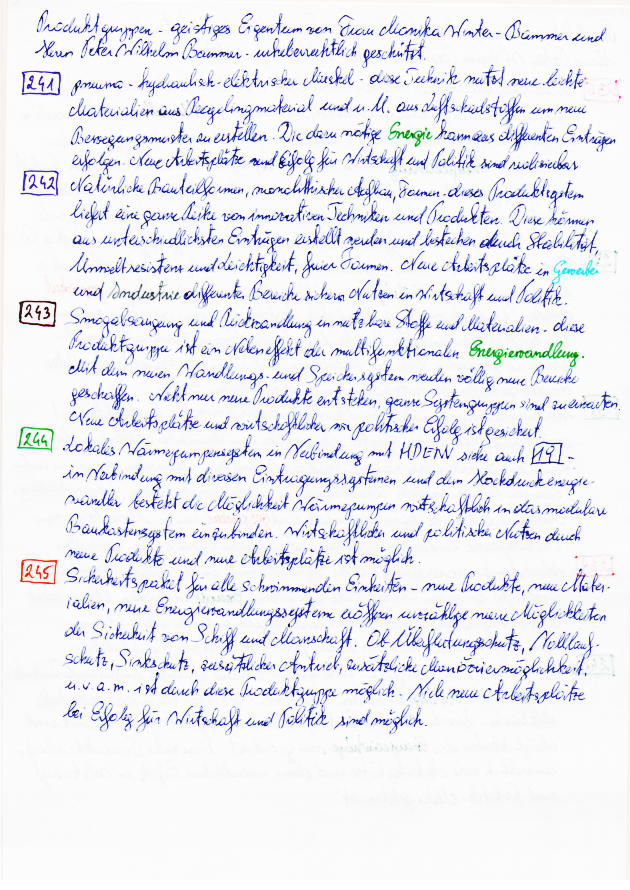 Produktgruppen - geistiges Eigentum von Frau Monika Winter - Bammer und
Herrn Peter Wilhelm Bammer - urheberrechtlich geschützt.
241 pneuma - hydraulisch - elektrischer Muskel - diese Technik nutzt neue leichte
Materialien aus Recyclingmaterial und u. U. aus Luftschadstoffen um neue
Bewegungsmuster zu erstellen. Die dazu nötige Energie kann aus differenten Einträgen
erfolgen. Neue Arbeitsplätze und Erfolg für Wirtschaft und Politik sind realisierbar
242 Natürliche Bauteilformen, monolithischer Aufbau, Formen - dieses Produktsystem
liefert eine ganze Reihe von innovativen Techniken und Produkten. Diese können
aus unterschiedlichsten Einträgen erstellt werden und bestechen durch Stabilität,
Umweltresistenz und Leichtigkeit, freier Formen. Neue Arbeitsplätze in Gewerbe
und Industrie differenter Bereiche sichern Nutzen in Wirtschaft und Politik.
243 Smogabsaugung und Rückwandlung in nutzbare Stoffe und Materialien - diese
Produktgruppe ist ein Nebeneffekt der multifunktionalen Energiewandlung.
Mit dem neuen Wandlungs- und Speichersystem werden völlig neue Bereiche
geschaffen. Nicht nur neue Produkte entstehen, ganze Systemgruppen sind zu erwarten
Neue Arbeitsplätze und wirtschaftlicher wie politischer Erfolg ist gesichert.
244 Lokales Wärmepumpensystem in Verbindung mit HDEW siehe auch 19 -
in Verbindung mit diversen Eintragungssystemen und dem Hochdruckenergie-
wandler besteht die Möglichkeit Wärmepumpen wirtschaftlich in das modulare
Baukastensystem einzubinden. Wirtschaftlicher und politischer Nutzen durch
neue Produkte und neue Arbeitsplätze ist möglich.
245 Sicherheitspaket für alle schwimmenden Einheiten - neue Produkte, neue Mater-
ialien, neue Energiewandlungssysteme eröffnen unzählige neue Möglichkeiten
der Sicherheit von Schiff und Mannschaft. Ob Überflutungsschutz, Vollauf-
schutz, Sinkschutz, zusätzlicher Antrieb, zusätzliche Manövriermöglichkeit,
u. v. a. m. ist durch diese Produktgruppe möglich. Viele neue Arbeitsplätze
bei Erfolg für Wirtschaft und Politik sind möglich.